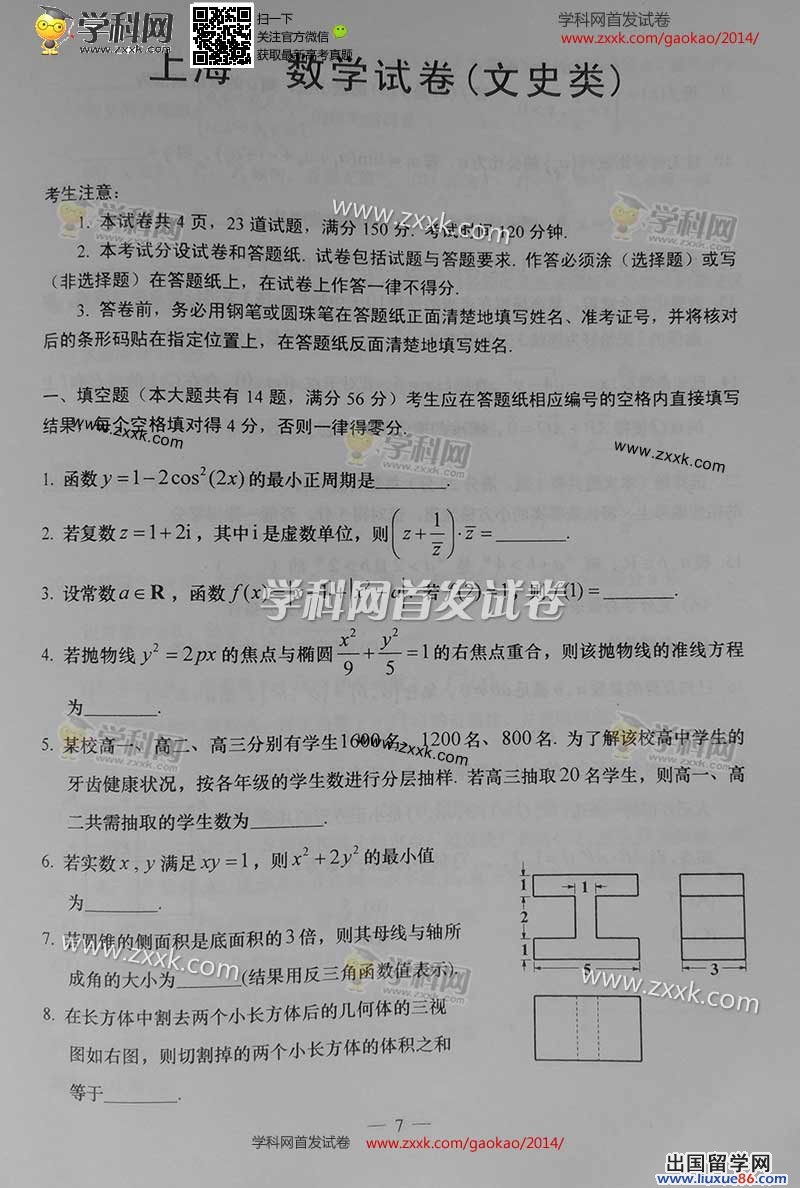 学科网
www.zxxk.com
扫一下
关注官方微信
获取最新高考真题
学科网首发试卷
www.zxxk.com/gaokao/2014/
上海 数学试卷(文史类)
考生注意：
1. 本试卷共4页，23道试题，满分150分. 考试时间120分钟.
2. 本考试分设试卷和答题纸. 试卷包括试题与答题要求. 作答必须涂（选择题）或写
（非选择题）在答题纸上，在试卷上作答一律不得分.
3. 答卷前，务必用钢笔或圆珠笔在答题纸正面清楚地填写姓名、准考证号，并将核对
后的条形码贴在指定位置上，在答题纸反面清楚地填写姓名.
一、填空题（本大题共有14题，满分56分）考生应在答题纸相应编号的空格内直接填写
结果，每个空格填对得4分，否则一律得零分.
1. 函数 y=1−2cos²(2x) 的最小正周期是________.
2. 若复数 z=1+2i，其中 i 是虚数单位，则 (z+1/z̄)·z̄=________.
3. 设常数 a∈R，函数 f(x)= 若 f(2)=1，则 f(1)=________.
4. 若抛物线 y²=2px 的焦点与椭圆 x²/9+y²/5=1 的右焦点重合，则该抛物线的准线方程
为________.
5. 某校高一、高二、高三分别有学生1600名、1200名、800名. 为了解该校高中学生的
牙齿健康状况，按各年级的学生数进行分层抽样. 若高三抽取20名学生，则高一、高
二共需抽取的学生数为________.
6. 若实数 x，y 满足 xy=1，则 x²+2y² 的最小值
为________.
7. 若圆锥的侧面积是底面积的3倍，则其母线与轴所
成角的大小为________(结果用反三角函数值表示).
8. 在长方体中割去两个小长方体后的几何体的三视
图如右图，则切割掉的两个小长方体的体积之和
等于________.
1
1
2
1
5
3
学科网首发试卷
www.zxxk.com
— 7 —
学科网首发试卷 www.zxxk.com/gaokao/2014/
出国留学网
liuxue86.com